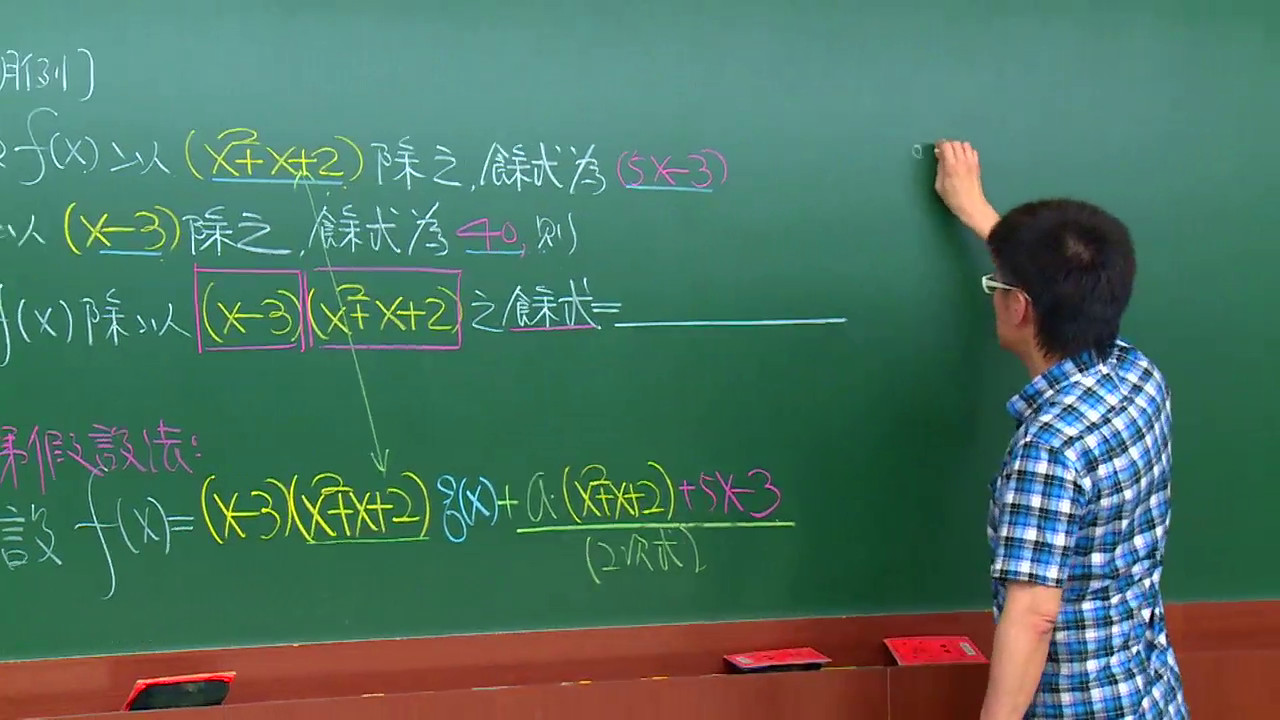 例]
f(x)以(x²+x+2)除之,餘式為(5x-3)
以(x-3)除之,餘式為40,則
f(x)除以(x-3)(x²+x+2)之餘式=
假設法:
設 f(x)=(x-3)(x²+x+2)g(x)+a·(x²+x+2)+5x-3
(2次式)